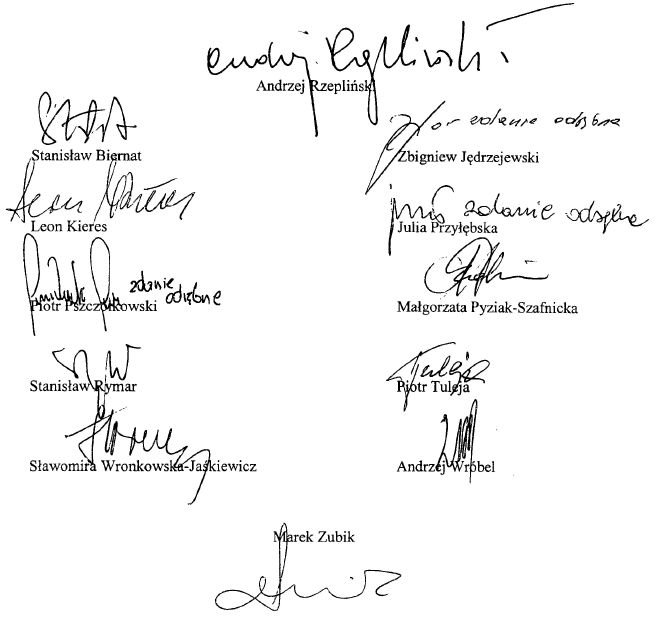 Andrzej Rzepliński
Andrzej Rzepliński
Stanisław Biernat
zdanie odrębne
Zbigniew Jędrzejewski
Leon Kieres
Leon Kieres
zdanie odrębne
Julia Przyłębska
zdanie
odrębne
Piotr Pszczółkowski
Małgorzata Pyziak-Szafnicka
Stanisław Rymar
Tuleja
Piotr Tuleja
Sławomira Wronkowska-Jaśkiewicz
Andrzej Wróbel
Marek Zubik